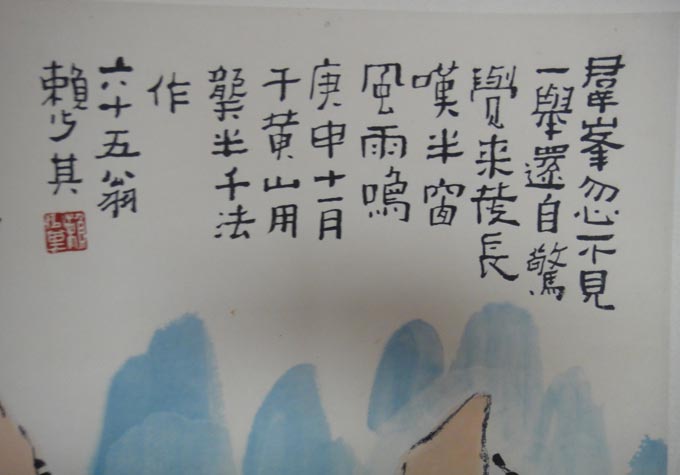 羣峯忽不見
一舉還自驚
覺來徒長
嘆半窗
風雨鳴
庚申十一月
于黄山用
龔半千法
作
六十五翁
賴少其